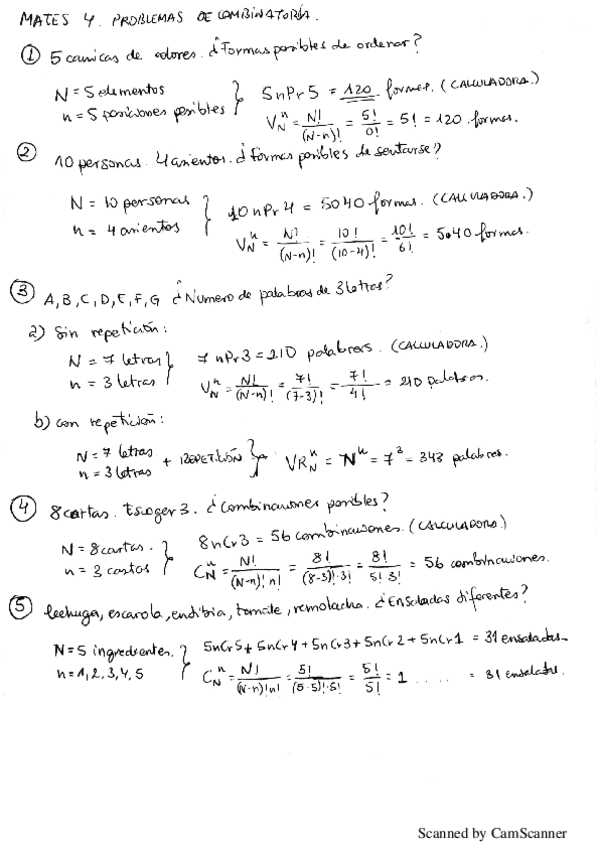 MATES 4. PROBLEMAS DE COMBINATORIA.
① 5 canicas de colores. ¿Formas posibles de ordenar?
N = 5 elementos
n = 5 posiciones posibles } 5nPr5 = 120 formas. (CALCULADORA.)
V_N^n = N!/(N-n)! = 5!/0! = 5! = 120 formas.
② 10 personas. 4 asientos. ¿Formas posibles de sentarse?
N = 10 personas
n = 4 asientos } 10nPr4 = 5040 formas. (CALCULADORA.)
V_N^n = N!/(N-n)! = 10!/(10-4)! = 10!/6! = 5040 formas.
③ A, B, C, D, E, F, G ¿Número de palabras de 3 letras?
a) Sin repetición:
N = 7 letras
n = 3 letras } 7nPr3 = 210 palabras. (CALCULADORA.)
V_N^n = N!/(N-n)! = 7!/(7-3)! = 7!/4! = 210 palabras.
b) con repetición:
N = 7 letras
n = 3 letras + REPETICIÓN } VR_N^n = N^n = 7^3 = 343 palabras.
④ 8 cartas. Escoger 3. ¿Combinaciones posibles?
N = 8 cartas.
n = 3 cartas } 8nCr3 = 56 combinaciones. (CALCULADORA)
C_N^n = N!/(N-n)! n! = 8!/(8-3)!·3! = 8!/5! 3! = 56 combinaciones.
⑤ lechuga, escarola, endibia, tomate, remolacha. ¿Ensaladas diferentes?
N = 5 ingredientes.
n = 1, 2, 3, 4, 5 } 5nCr5 + 5nCr4 + 5nCr3 + 5nCr2 + 5nCr1 = 31 ensaladas
C_N^n = N!/(N-n)! n! = 5!/(5-5)!·5! = 5!/5! = 1 ..... = 31 ensaladas.
Scanned by CamScanner